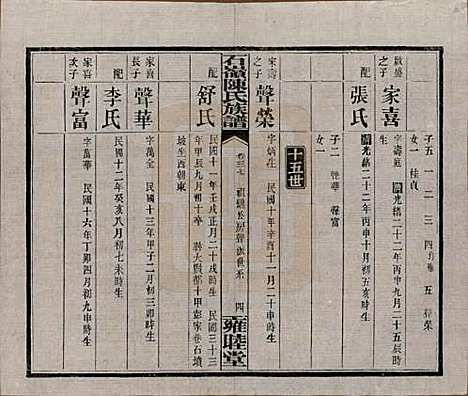 子五 一 二 三 四 五 聲榮
女一 桂貞
之子 家喜 字壽庭 清光緒二十二年丙申九月二十五辰時生
配 張氏 清光緒二十二年丙申十月初五亥時生
子二 聲華 聲富
女一
十五世
家壽之子 聲榮 字炳生 民國十年辛酉十一月二十時生
配 舒氏 民國十一年壬戌正月二十戌時生 民國三十三
年甲辰九月初十卒 葬大縣都十甲彭家巷石墳
坡坐西朝東
石嶺陳氏族譜 四 雍睦堂
家喜長子 聲華 字萬全 民國十三年甲子二月初三卯時生
配 李氏 民國十二年癸亥八月初七未時生
家喜次子 聲富 字萬華 民國十六年丁卯四月初九申時生